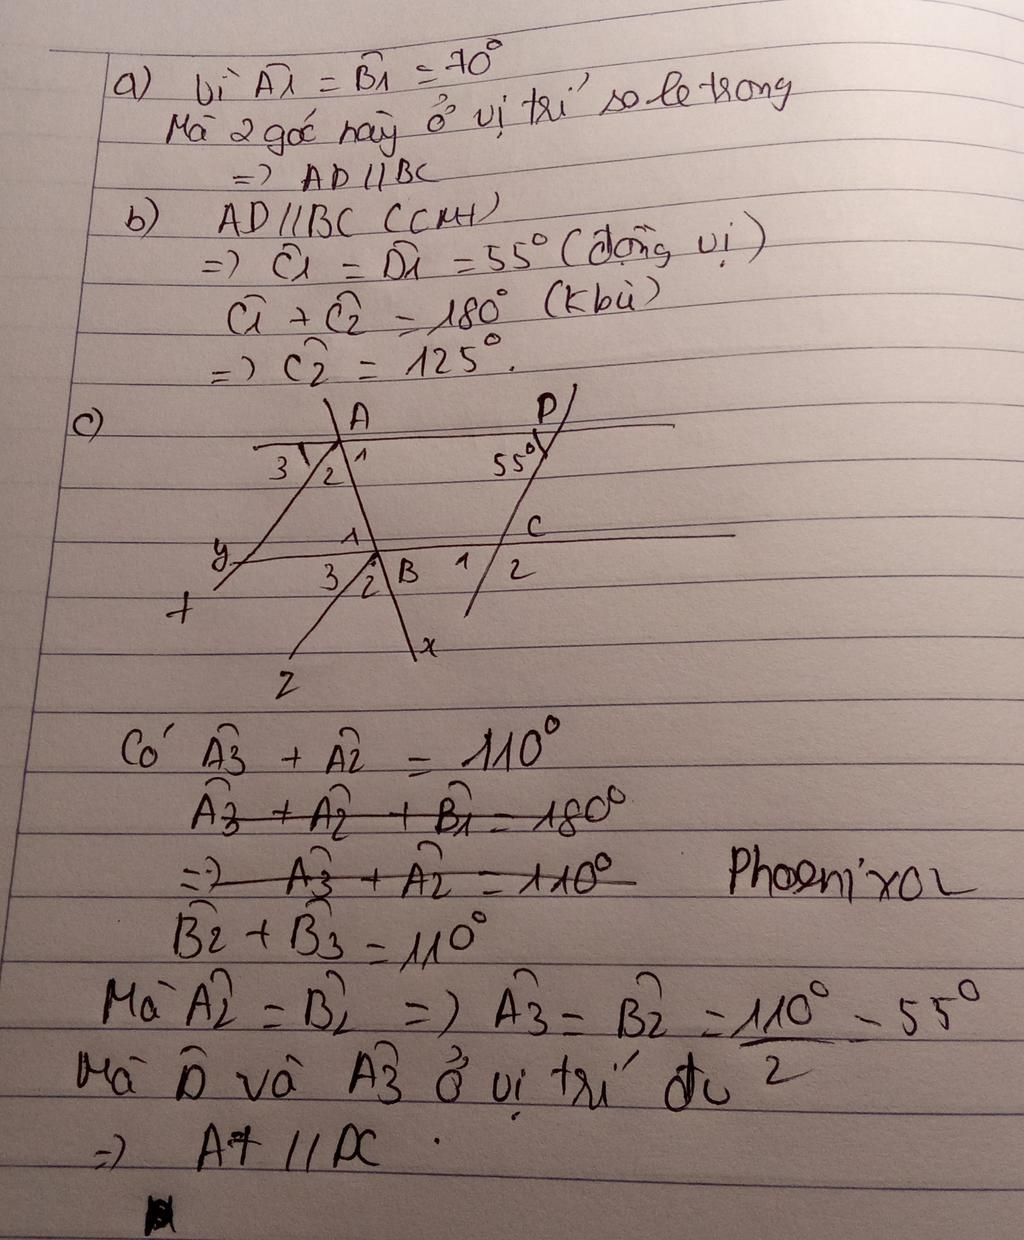 a) Vì Â1 = B̂1 = 70°
Mà 2 góc này ở vị trí so le trong
=> AD // BC
b) AD // BC (CMT)
=> Ĉ1 = D̂1 = 55° (đồng vị)
Ĉ1 + Ĉ2 = 180° (kbù)
=> Ĉ2 = 125°.
c)
A D
3 2 1 55°
y 1 C
3 2 B 1 2
t
x
z
Có Â3 + Â2 = 110°
Â3 + Â2 + B̂1 = 180°
=> Â3 + Â2 = 110°
Phoenixol
B̂2 + B̂3 = 110°
Mà Â2 = B̂2 => Â3 = B̂2 = 110°/2 = 55°
Mà D̂ và Â3 ở vị trí đv
=> At // DC.